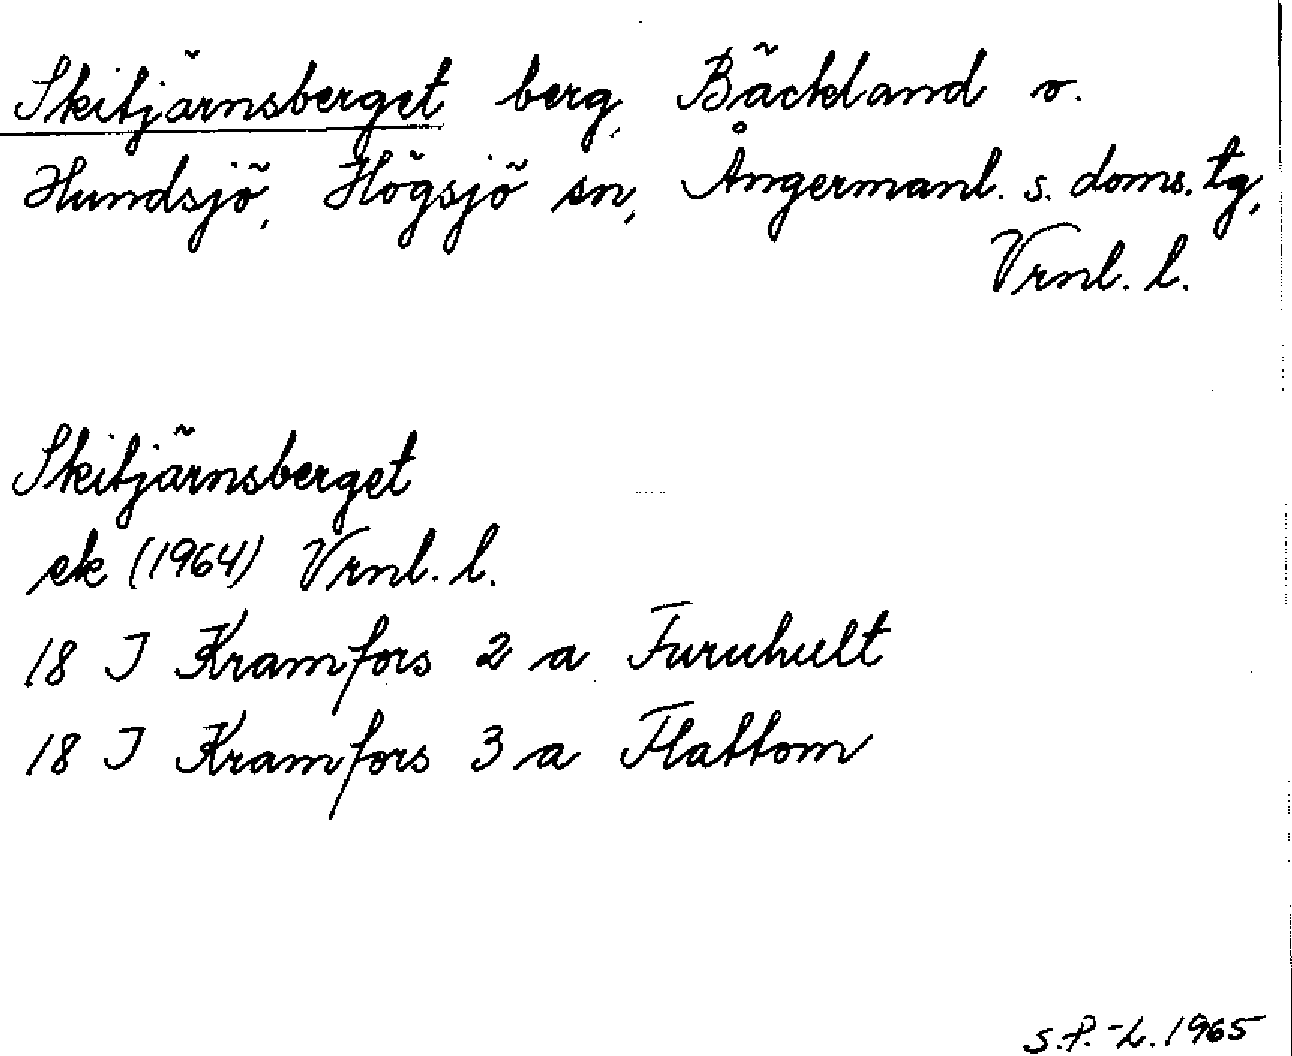 Skitjärnsberget berg, Bäckland o.
Hundsjö, Högsjö sn, Ångermanl. s. doms. tg,
Vrnl. l.
Skitjärnsberget
ek (1964) Vrnl. l.
18 I Kramfors 2 a Furuhult
18 I Kramfors 3 a Flattom
S.P.-L. 1965